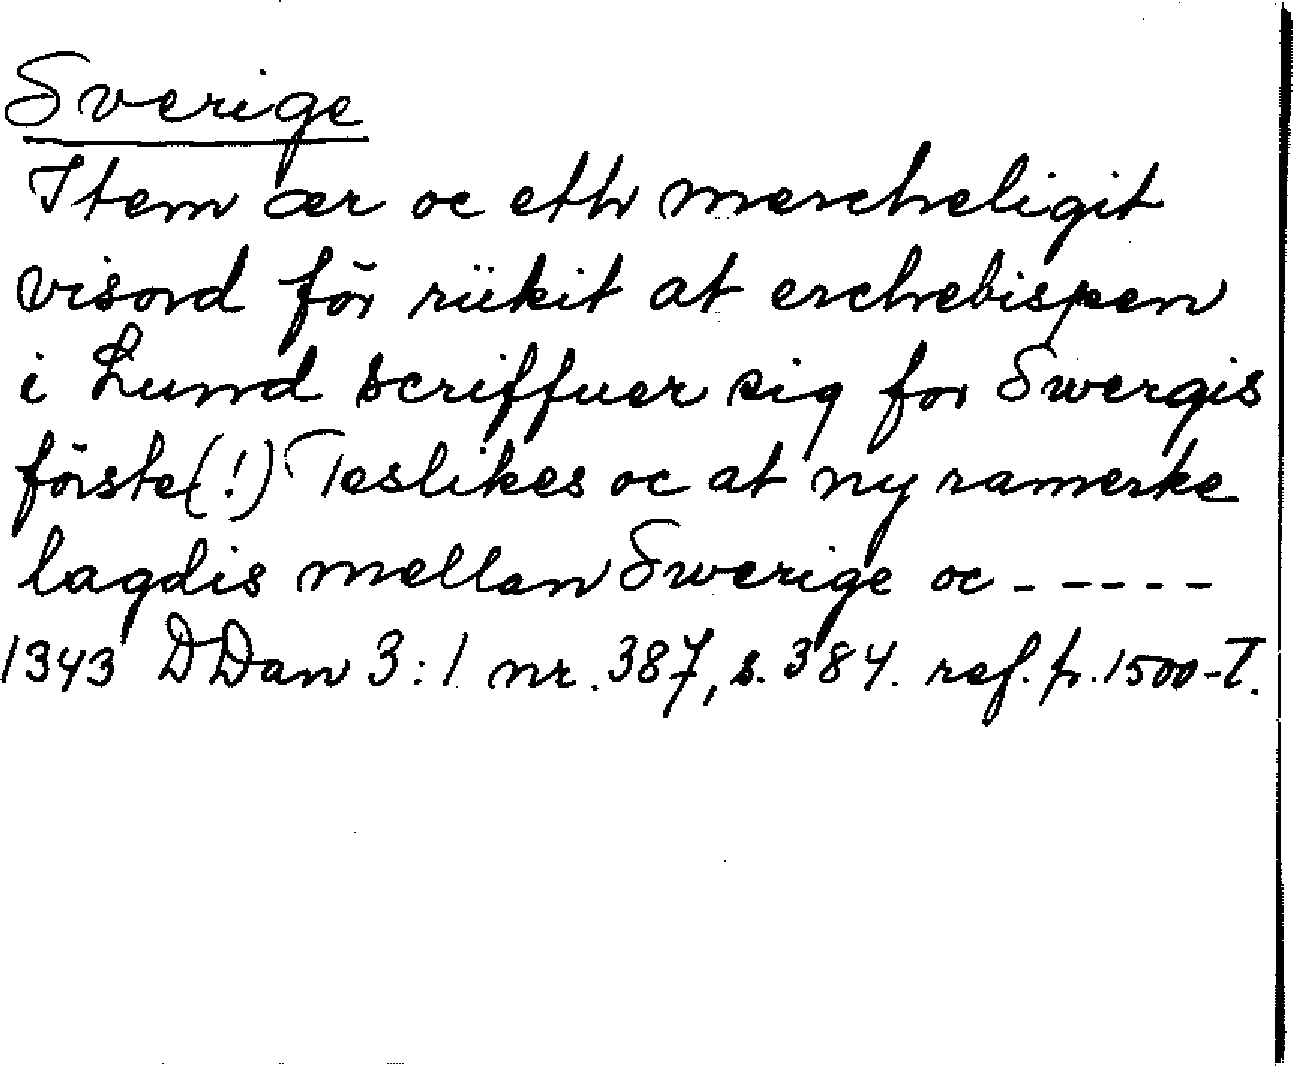 Sverige
Item ær oc eth mercheligit
visord för riikit at erchebispen
i Lund scriffuer sig for Swergis
förste(!) Teslikes oc at ny ramerke
lagdis mellan Swerige oc - - - - -
1343 DDan 3:1 nr. 387, s. 384. ref. fr. 1500-T.